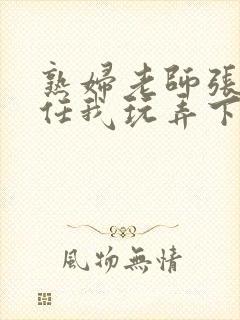 熟婦老師張
任我玩弄下
風物無情